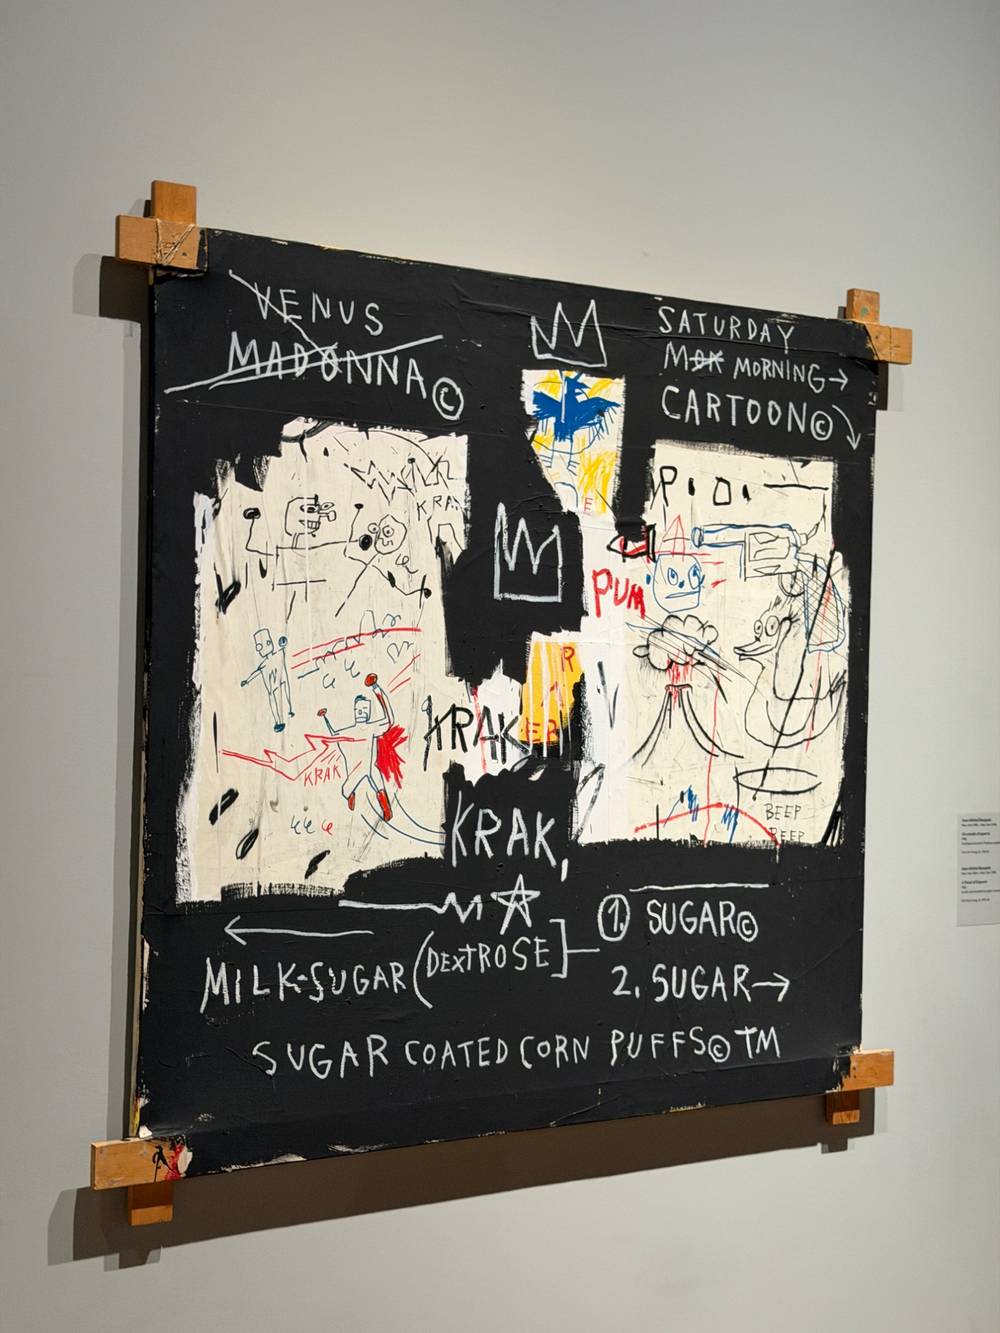 VENUS
MADONNA©
SATURDAY
MOR MORNING→
CARTOON©
KRA
P.O.
E
PUM
R
KRAK
ER
KRAK
BEEP
BEEP
KRAK,
1. SUGAR©
MILK-SUGAR (DEXTROSE]
2. SUGAR→
SUGAR COATED CORN PUFFS© TM